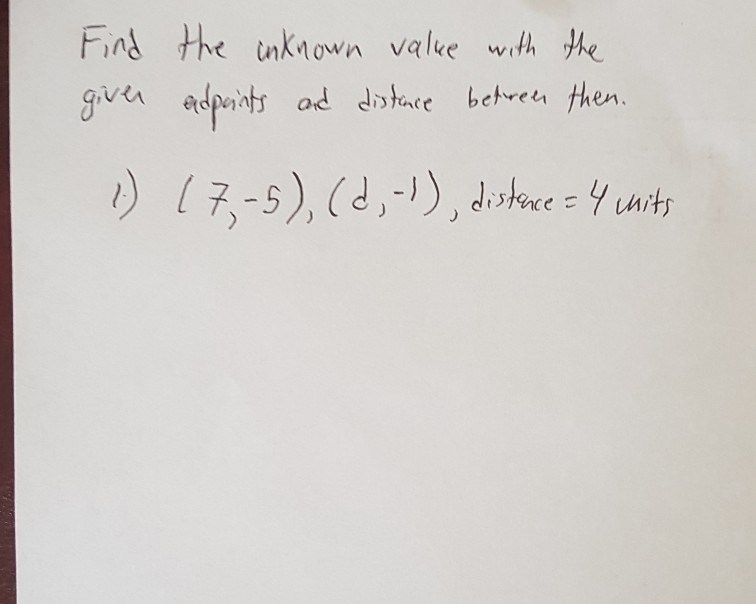 Find the unknown value with the
given edpoints ad distance between then.
1.) (7,-5), (d,-1), distance = 4 units